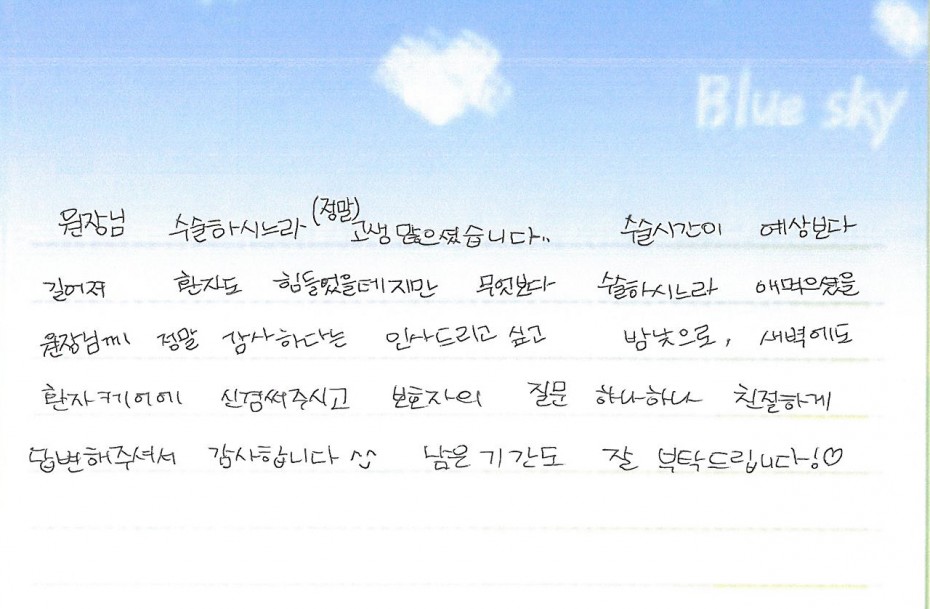 Blue sky
원장님 수술하시느라 (정말) 고생 많으셨습니다.. 수술시간이 예상보다
길어져 환자도 힘들었을테지만 무엇보다 수술하시느라 애먹으셨을
원장님께 정말 감사하다는 인사드리고 싶고 밤낮으로, 새벽에도
환자케어에 신경써주시고 보호자의 질문 하나하나 친절하게
답변해주셔서 감사합니다 ^^ 남은 기간도 잘 부탁드립니다!♡